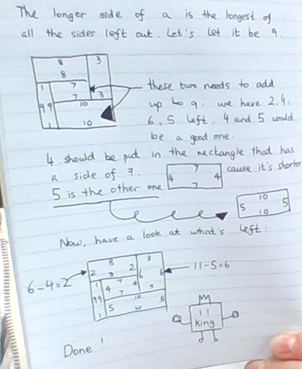 The longer side of a is the longest of
all the sides left out. Let's let it be 9
8
3
8
1
7
7
3
9 9
10
1
10
these two needs to add
up to 9. we have 2, 4,
6, 5 left. 4 and 5 would
be a good one.
4 should be put in the rectangle that has
a side of 7. cause it's shorter
7
4 4
7
5 is the other one
10
5 5
10
Now, have a look at what's left:
6-4=2
11-5=6
8
3
2 2
8
6 6
1
7
4 4
7
3
9 9
10
5 5
1
10
11
King
Done !